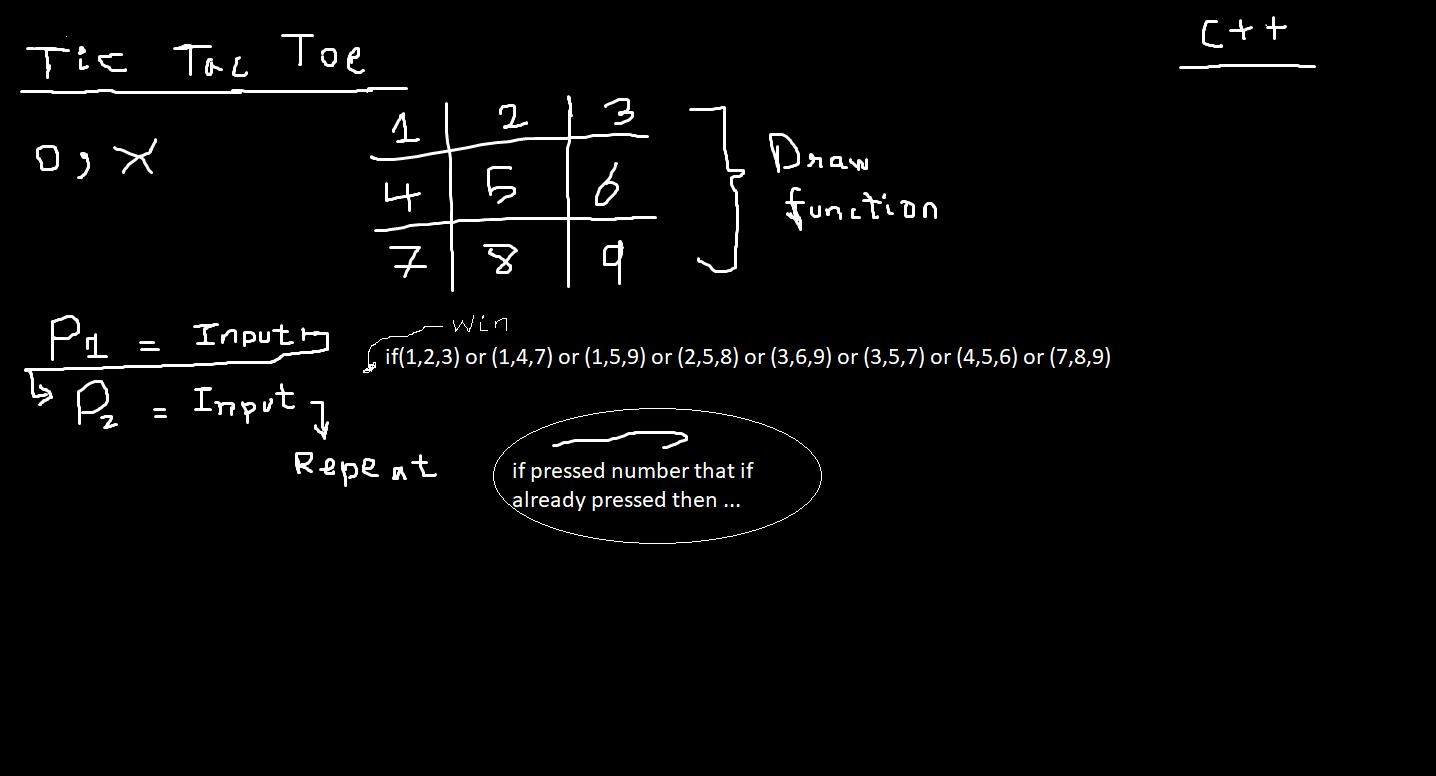 Tic Tac Toe
C++
O, X
1 2 3
4 5 6
7 8 9
Draw
function
P1 = Input
P2 = Input
Repeat
Win
if(1,2,3) or (1,4,7) or (1,5,9) or (2,5,8) or (3,6,9) or (3,5,7) or (4,5,6) or (7,8,9)
if pressed number that if
already pressed then ...